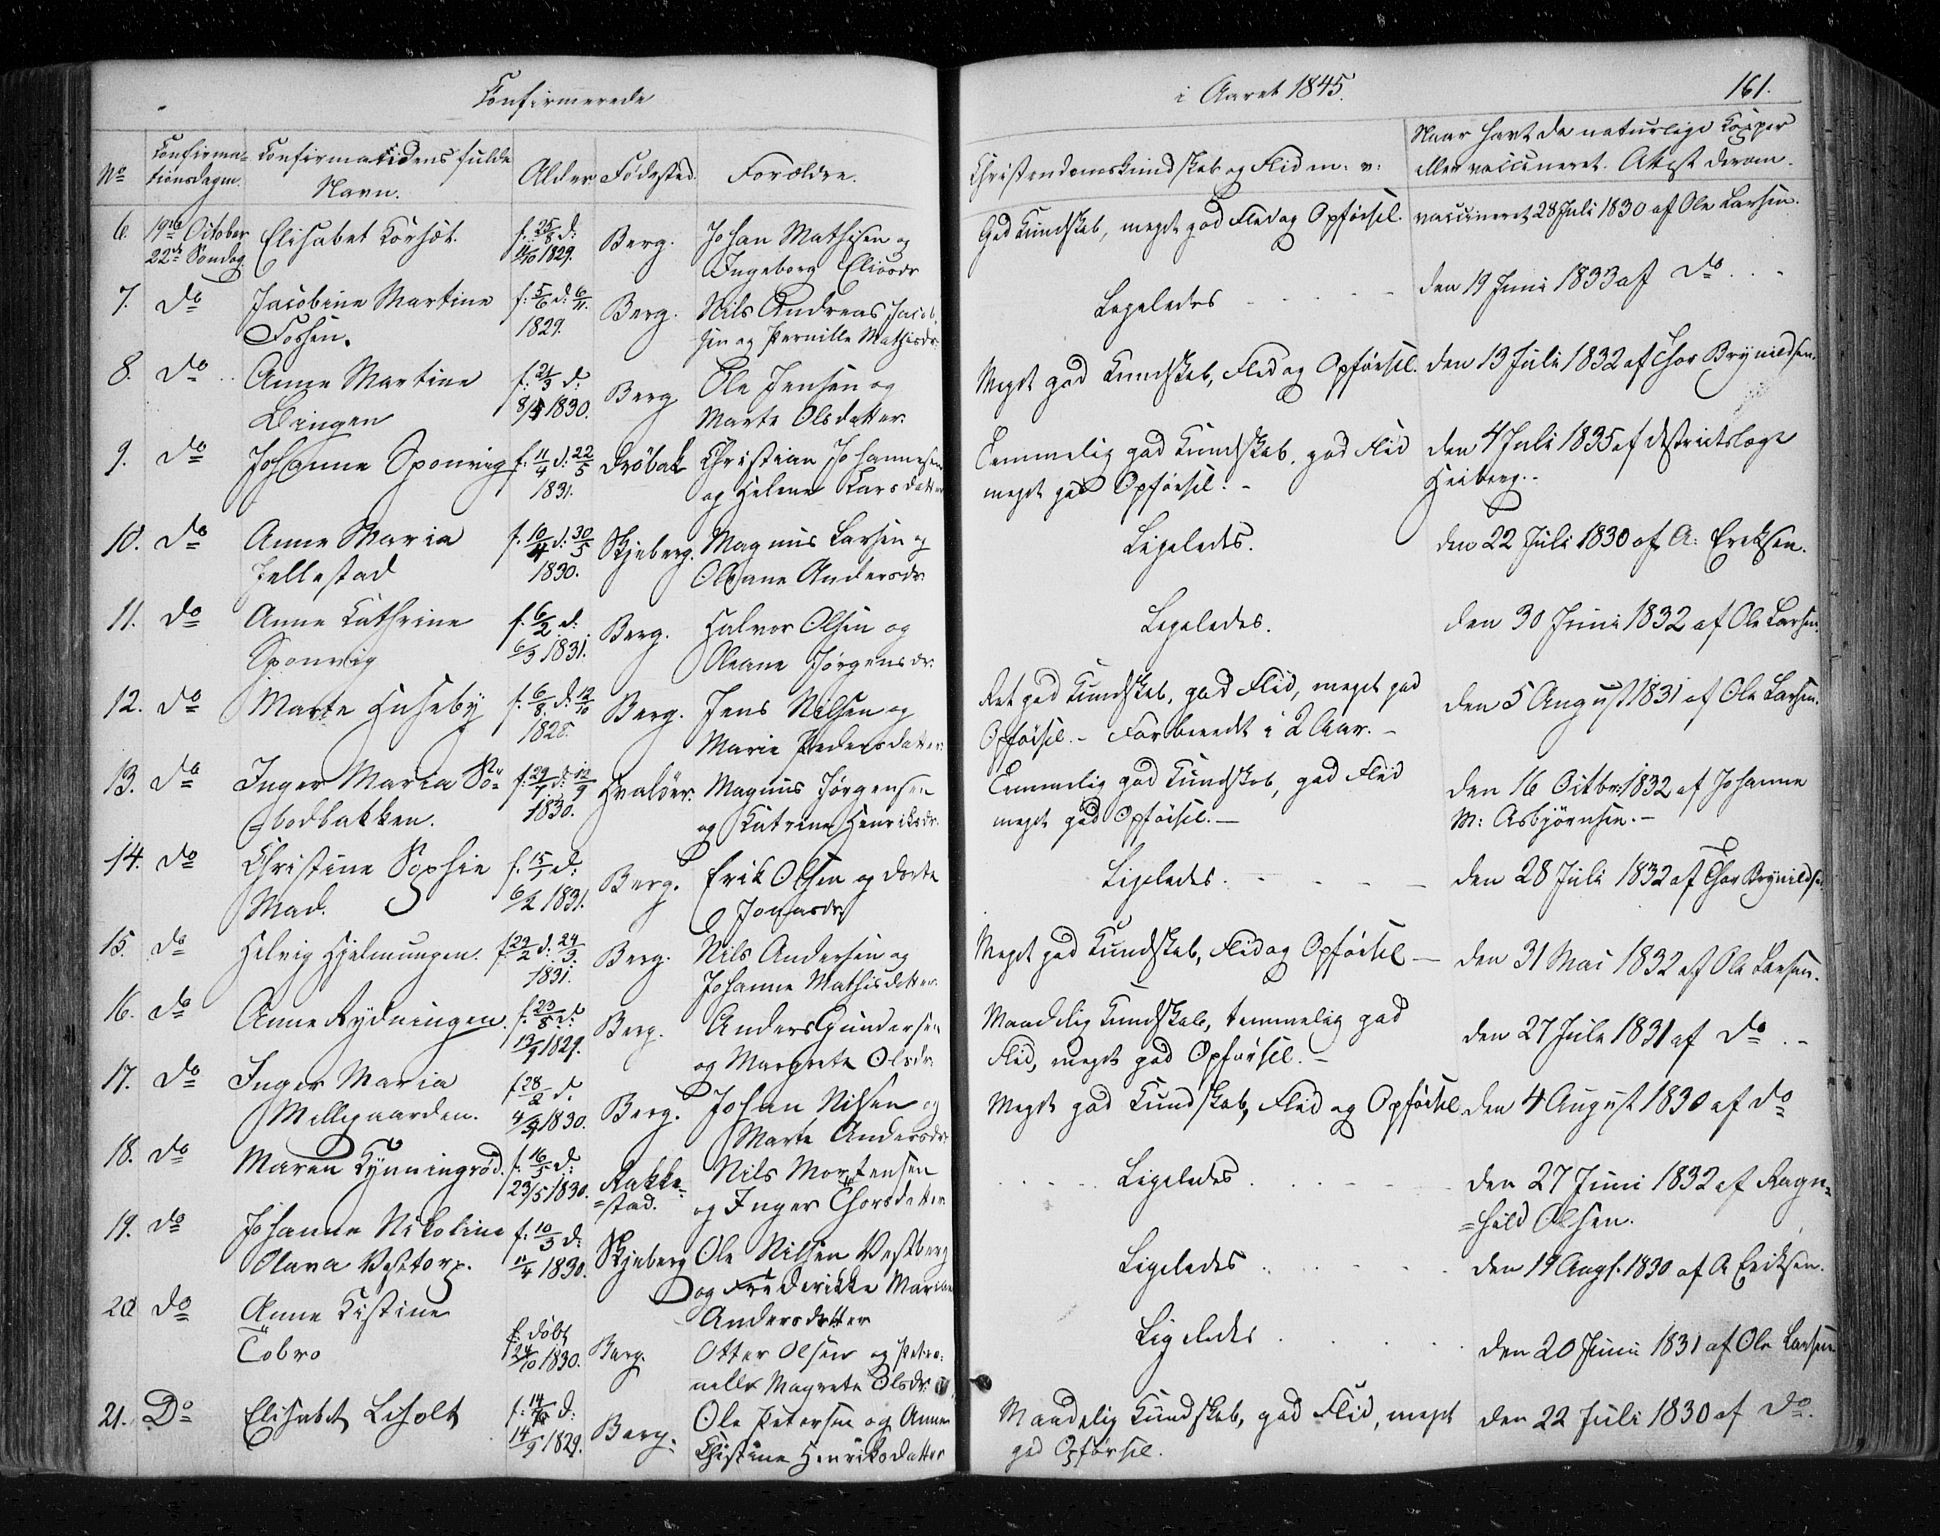 Confirmerede
i Aaret 1845.
161.
No
Confirma-
tionsdagen.
Confirmatidens fulde
Navn.
Alder
Fødested
Forældre.
Christendomskundskab og Flid m: v:
Naar havt de naturlige Kopper
eller vaccineret. Attest derom.
6. 19de October Elisabet Korsæt. f. 25/8 d: Berg. Johan Mathisen og God Kundskab, meget god Flid og Opførsel. vaccineret 28 Juli 1830 af Ole Larsen.
22de Søndag 11/10 1829. Ingeborg
7. do Jacobine Martine f: 5/6 d: 6/11 Berg. Nils Andreas Jacob- Ligeledes den 19 Juni 1833 af do
Fossen. 1829. sen og Pernille Mathisdr:
8. do Anne Martine f: 21/3 d: Berg Ole Jensen og Meget god Kundskab, Flid og Opførsel. den 13 Juli 1832 af Thor Brynildsen.
1830. Marte Olsdatter.
9. do Johanne Sponvig f. 11/4 d: 22/5 Drøbak Christian Johannesen Temmelig god Kundskab, god Flid den 4 Juli 1835 af Districtslæge
1831. og Helene Larsdatter meget god Opførsel. - Heiberg. -
10. do Anne Maria f. 10/4 d: 30/5 Skjeberg. Magnus Larsen og Ligeledes. den 22 Juli 1830 af A: Eriksen.
1830. Oleane Andersdr:
11. do Anne Kathrine f. 6/2 d: Berg. Halvor Olsen og Ligeledes. den 30 Juni 1832 af Ole Larsen.
Sponvig 6/3 1831. Oleane Jørgensdr:
12. do Marte Huseby f. 6/8 d: 12/10 Berg. Jens Nilsen og Ret god Kundskab, god Flid, meget god den 5 August 1831 af Ole Larsen.
1828. Marie Pedersdatter Opførsel. - Forberedt i 2 Aar. -
13. do Inger Maria f: 29/7 d: 12/9 Hvaløer. Magnus Jørgensen Temmelig god Kundskab, god Flid den 16 Octbr: 1832 af Johanne
bodbakken. 1830. og Katrine Henriksdr. meget god Opførsel. - M: Asbjørnsen. -
14. do Christine Sophie f. 15/1 d: Berg. Erik Olsen og Dorte Ligeledes. den 28 Juli 1832 af Thor Brynildsen
6/2 1831. Jonasdr
15. do Helvig Hjelmungen. f. 22/2 d. 24/3 Berg. Nils Andersen og Meget god Kundskab, Flid og Opførsel - den 31 Mai 1832 af Ole Larsen.
1831. Johanne Mathisdatter.
16. do Anne Rydningen. f. 23/8 d: Berg. Anders Gundersen Maadelig Kundskab, temmelig god den 27 Juli 1831 af do. -
13/9 1829. og Margrete Olsdr: Flid, meget god Opførsel. -
17. do Inger Maria f 28/2 d. Berg. Johan Nilsen og Meget god Kundskab, Flid og Opførsel den 4 August 1830 af do
Mellegaarden. 4/4 1830. Marte Andersdr
18. do Maren Kynningrød. f. 16/5 d: Rakke- Nils Mortensen Ligeledes den 27 Juni 1832 af Ragn-
23/5 1830. =stad. og Inger Thorsdatter =hild Olsen.
19. do Johanne Nikoline f: 10/3 d: Skjeberg Ole Nilsen Vestberg Ligeledes den 19 Augt. 1830 af A Eriksen.
Olava Vesttorp. 11/4 1830. og Frederikke Marie
Andersdatter
20 do Anne Kistine f. døbt Berg. Otter Olsen og Petro- Ligeledes den 20 Juni 1831 af Ole Larsen
Tobro 24/10 1830. nelle Magrete Olsdr:
21. Do Elisabet Liholt f. 14/ d: Berg. Ole Petersen og Anne Maadelig Kundskab, god Flid, meget den 22 Juli 1830 af do.
14/9 1829. Christine Henriksdatter god Opførsel.